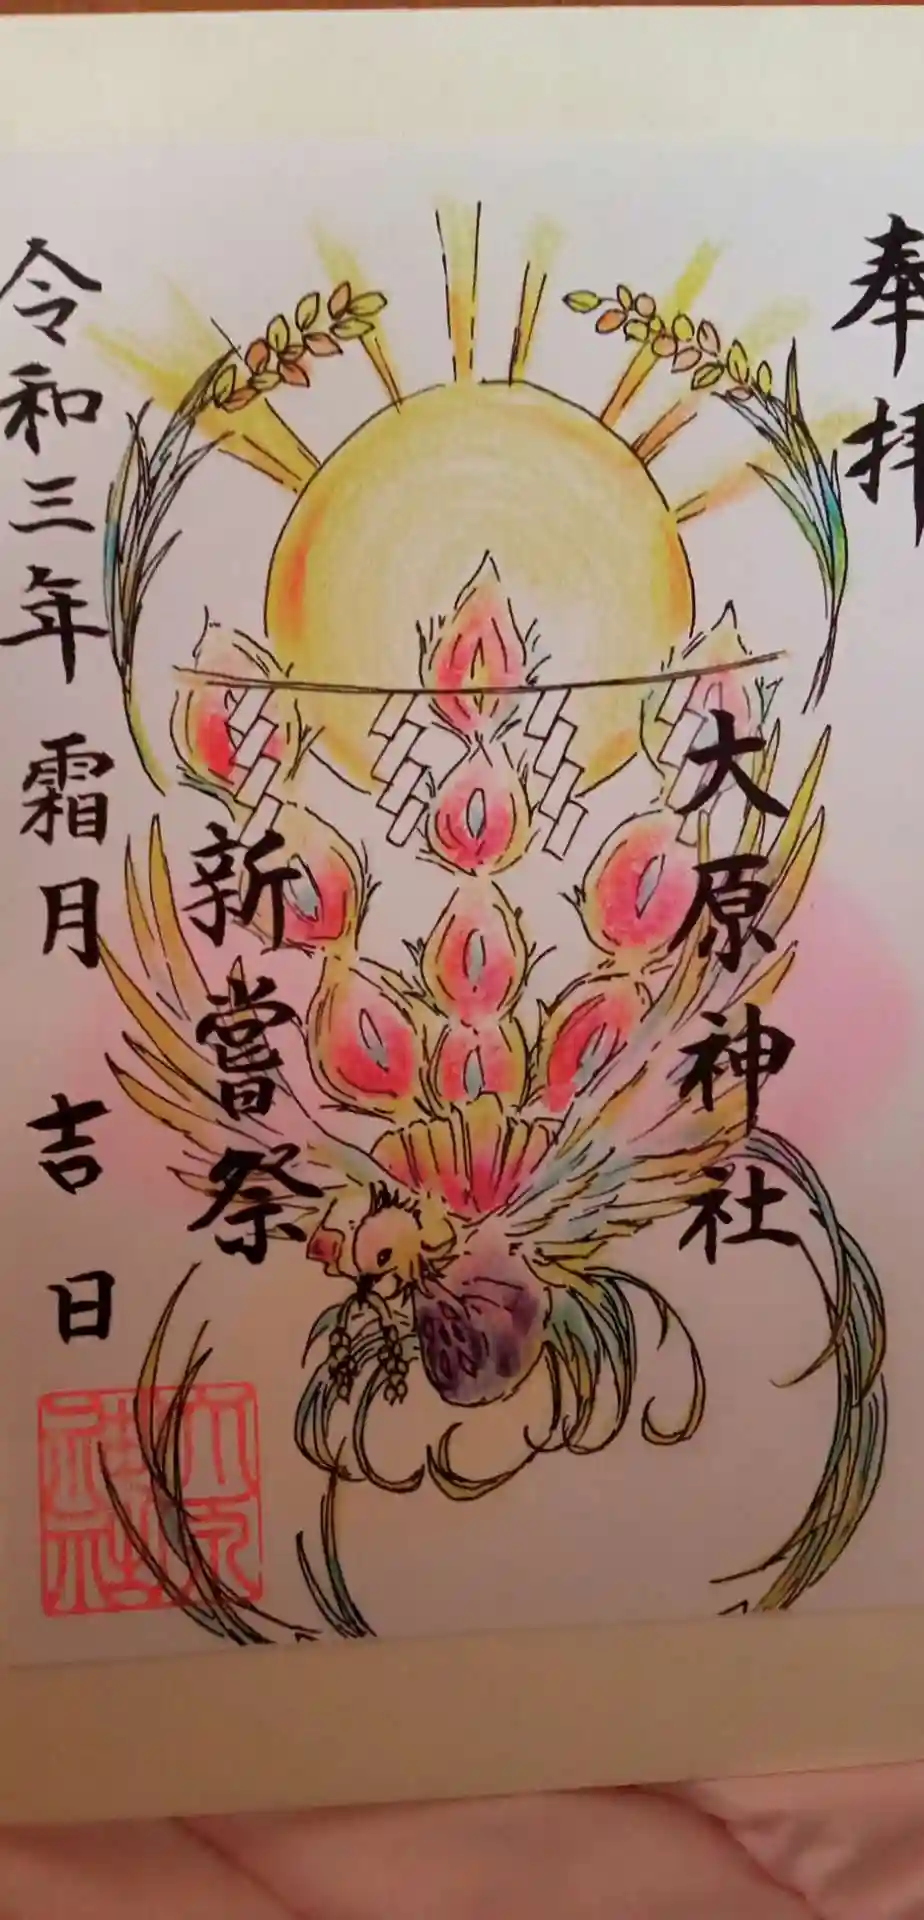 奉拝
大原神社
新嘗祭
令和三年霜月吉日
大原神社